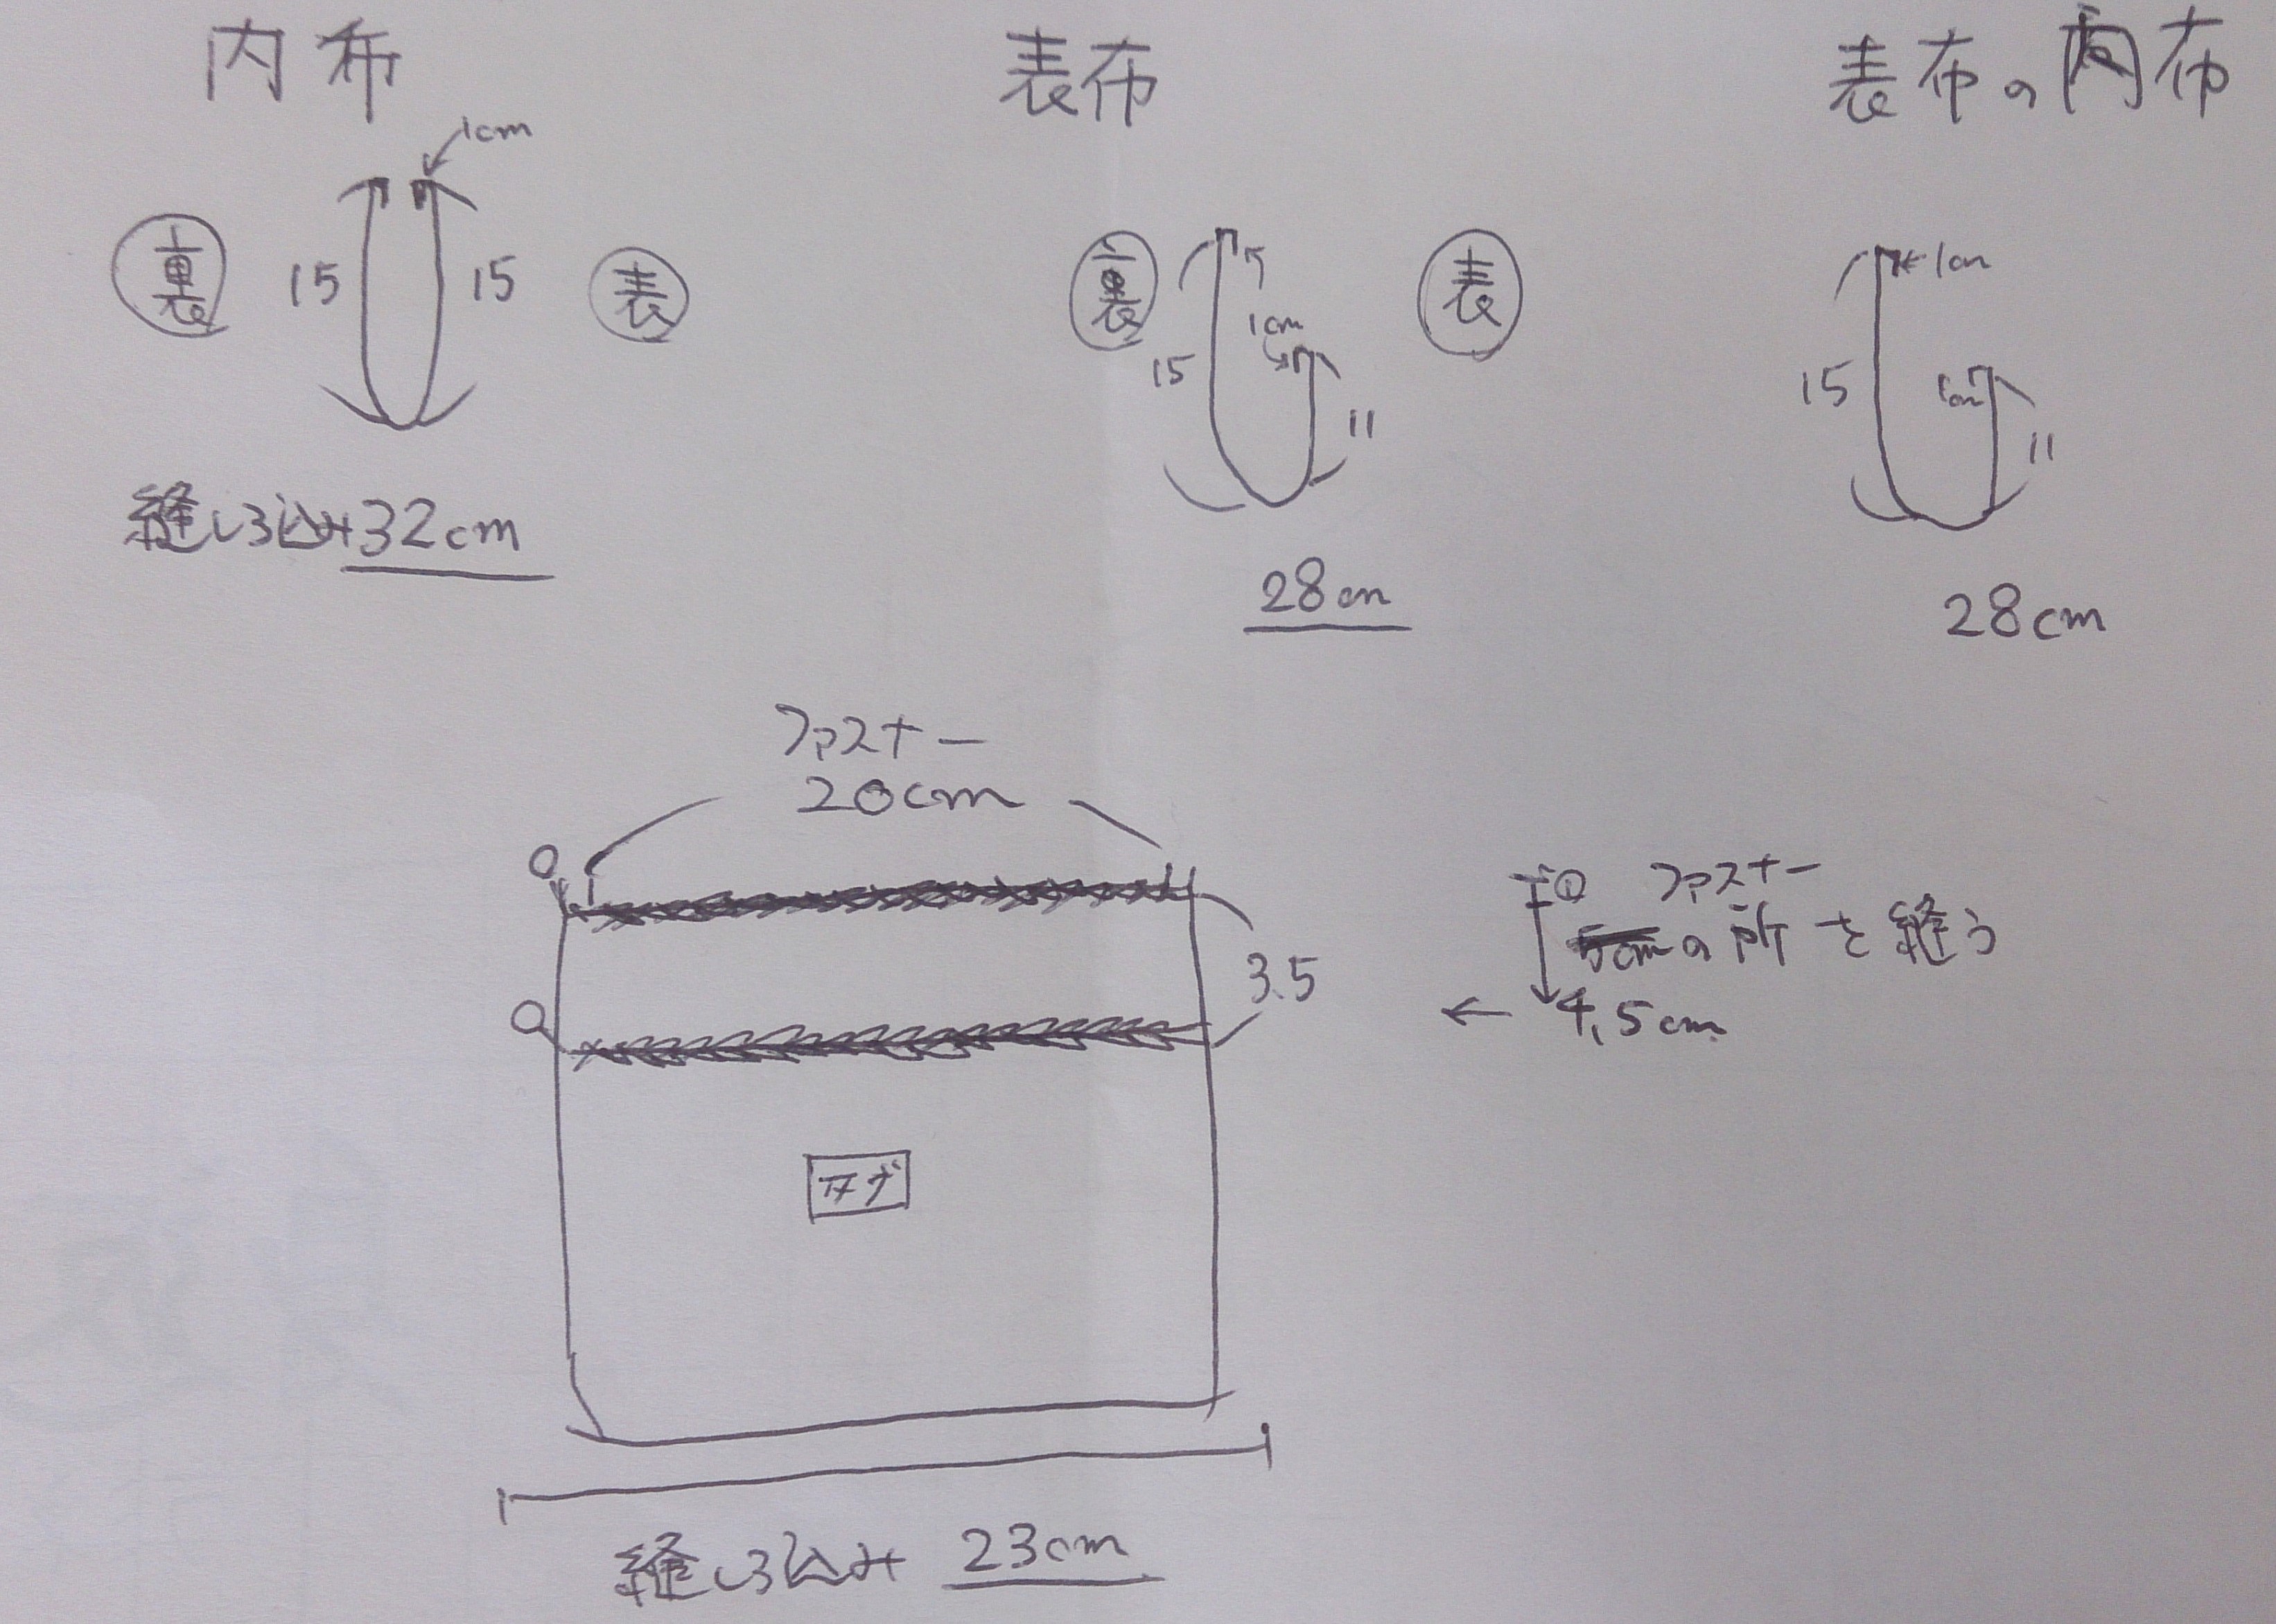 内布
1cm
裏
15
15
表
縫しろ込み32cm
表布
裏
表
1cm
15
11
28cm
表布の内布
1cm
15
1cm
11
28cm
ファスナー
20cm
3.5
① ファスナー
5cmの所を縫う
← 4.5cm
タグ
縫しろ込み 23cm